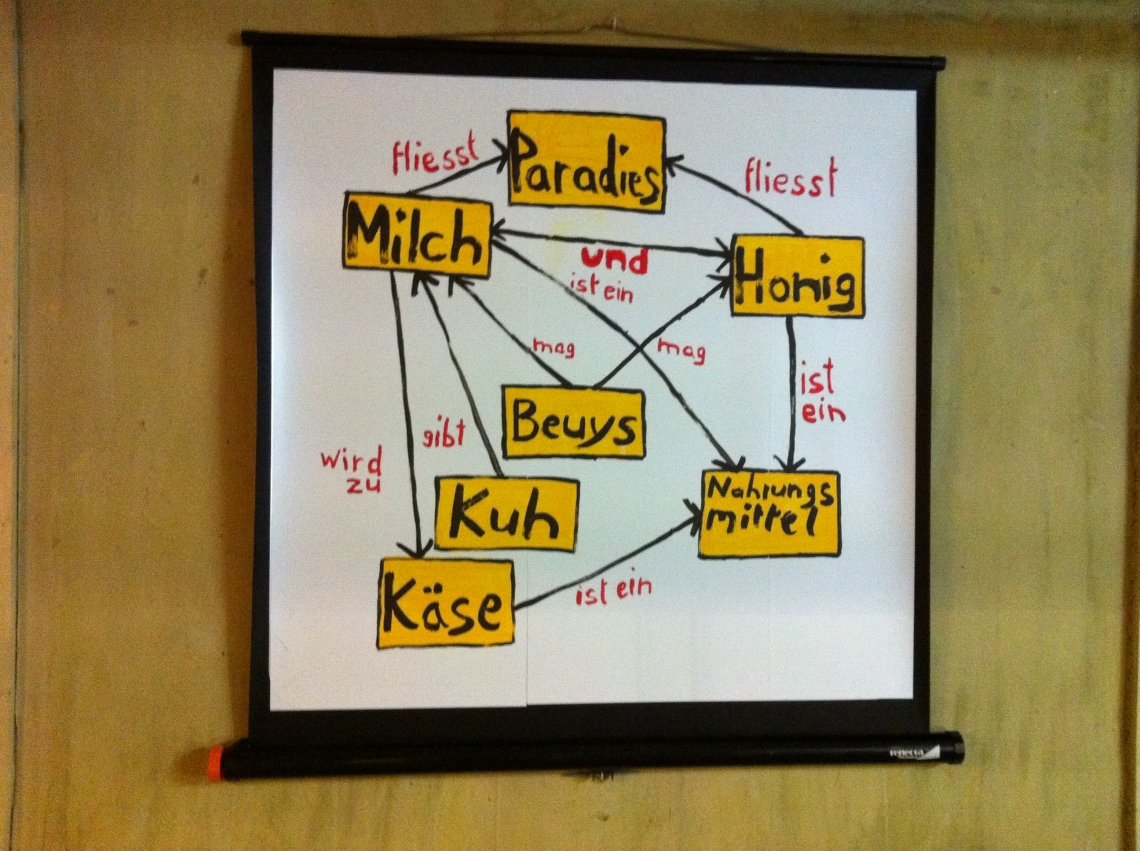 fliesst
Paradies
fliesst
Milch
und
Honig
ist ein
mag
mag
ist
ein
Beuys
gibt
wird
zu
Kuh
Nahrungs
mittel
Käse
ist ein